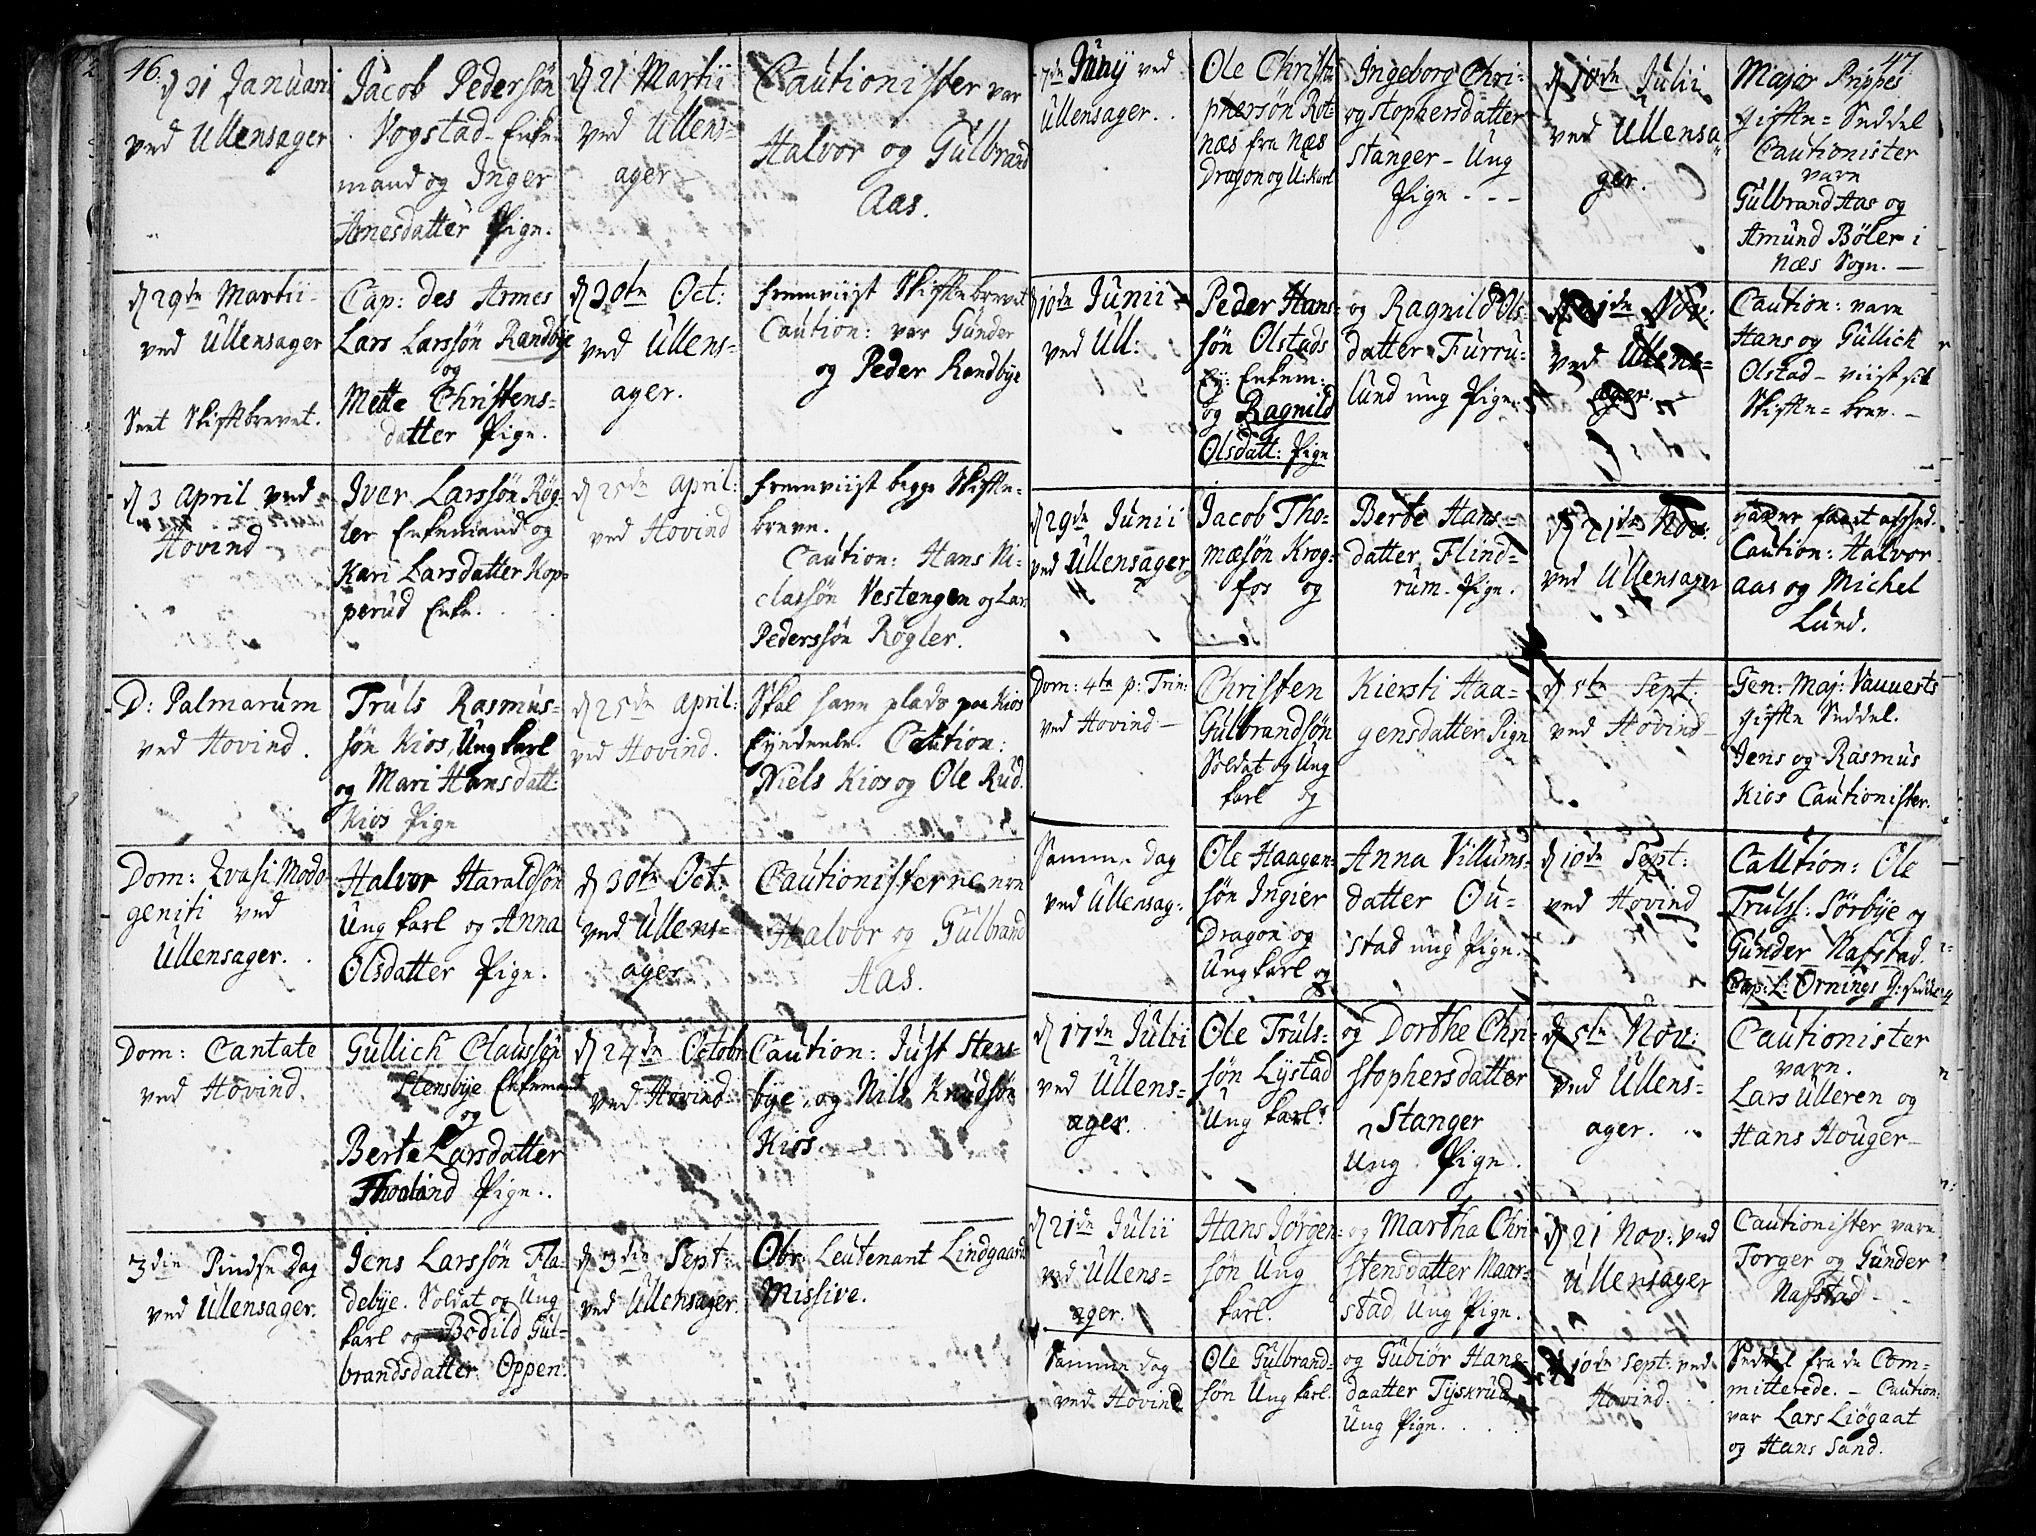 46.
d 21 Januarii
ved Ullensager
Jacob Pedersøn
Vogstad Enke-
mand og Inger
Arnesdatter Pige.
d 21 Martii
ved Ullens=
ager
Cautionister var
Halvor og Gulbrand
Aas.
d 29de Martii
ved Ullensager
Seet Skiftebrevet.
Cap: des Armes
Lars Larssøn Randbye
og
Mette Christens=
datter Pige.
d 30te Oct:
ved Ullens=
ager.
fremviist Skiftebrevet
Caution: var Gunder
og Peder Randbye
d 3 April ved
Hovind
Iver Larssøn Røg=
ler Enkemand og
Kari Larsdatter Kop=
perud Enke.
d 25de April:
ved Hovind
fremviist begge Skifte=
breve.
Caution: Hans Ni=
classøn Vestengen og Lars
Pederssøn Røgler.
D: Palmarum
ved Hovind.
Truls Rasmus=
søn Kios, Ung karl
og Mari Hansdatt:
Kios Pige
d 25de April:
ved Hovind.
Skal have plads paa Kios
Eyendeele. Caution:
Niels Kios og Ole Rud.
Dom: Qvasi Modo
geniti ved
Ullensager.
Halvor Haraldsøn
Ung karl og Anna
Olsdatter Pige.
d 30te Oct:
ved Ullens=
ager
Cautionisterne
Halvor og Gulbrand
Aas.
Dom: Cantate
ved Hovind.
Gullich Claussøn
Stensbye Enkemand
og
Berte Larsdatter
Pige.
d 24de Octobr
ved Hovind
Caution: Just Stens=
bye, og Nils Knudsøn
Kios.
3die Pindse Dag
ved Ullensager.
Jens Larssøn Fla=
debye. Soldat og Ung
karl og Bodild Gul=
brandsdatter Oppen.
d 3die Sept:
ved Ullensager.
Obr: Leutenant Lindgaards
Missive.
47
7de Junij ved
Ullensager.
Ole Christo
phersøn Rot=
næs fra Næs
Dragon og U: karl
Ingeborg Chri=
og stophersdatter
Stanger - Ung
Pige - - -
d 10de Julii
ved Ullensa
ger.
Major Prippes
Gifte=Seddel
Cautionister
vare
Gulbrand Aas og
Amund Bøler i
Næs Sogn. -
d 10de Junii
ved Ull:
Peder Hans=
søn Olstads
Ey: Enkem:
og Ragnild
Olsdatt: Pige
og Ragnild Ols=
datter Furru=
lund ung Pige.
Nov:
ved Ullens=
ager.
Caution: vare
Hans og Gullich
Olstad - viist sit
Skifte=brev. -
d 29de Junii
ved Ullensager
Jacob Tho=
mæsøn Krog=
fos og
Berte Hans=
datter Flind=
rum. Pige.
d 21de Nov:
ved Ullensager
Caution: Halvor
aas og Michel
Lund.
Dom: 4te p: Trin:
ved Hovind -
Christen
Gulbrandsøn
Soldat og Ung
karl og
Kiersti Haa=
gensdatter Pige
d 5te Sept:
ved Hovind -
Gen: Maj:
Gifte Seddel.
Jens og Rasmus
Kios Cautionister.
Samme Dag
ved Ullensag:
Ole Haagen=
søn Ingier
Dragon og
Ung karl og
Anna Villums=
datter Ou=
stad ung Pige.
d 10de Sept:
ved Hovind
Caution: Ole
Trulss: Sørbye og
Gunder Nafstad.
Cap: L: Ornings G: seddel
d 17de Julii
ved Ullens=
ager.
Ole Truls=
søn Lystad
Ung karl.
og Dorthe Chri=
stophersdatter
Stanger
Ung Pige.
d 5te Nov:
ved Ullens=
ager.
Cautionister
vare.
Lars Ulleren og
Hans Houger -
d 21de Julii
ved Ullens=
ager.
Hans Jørgen=
søn Ung
karl.
og Martha Chri=
stensdatter Maar=
stad Ung Pige.
d 21 Nov: ved
Ullensager
Cautionister vare
Torger og Gunder
Nafstad
Samme Dag
ved Hovind
Ole Gulbrand=
søn Ung karl.
og Gubiør Hans=
daatter Tyskrud
Ung Pige.
d 10de Sept: ved
Hovind.
Seddel fra de Com=
mitterede. - Caution:
var Lars Liøgaat
og Hans Sand.